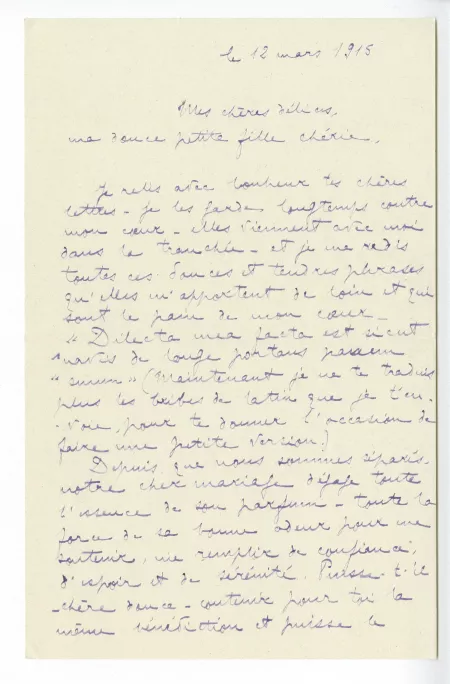 le 12 mars 1915
Mes chères délices,
ma douce petite fille chérie,
Je relis avec bonheur tes chères
lettres - je les garde longtemps contre
mon cœur - elles viennent avec moi
dans la tranchée - et je me redis
toutes ces douces et tendres phrases
qu'elles m'apportent de loin et qui
sont le pain de mon cœur -
"Dilecta mea facta est sicut
navis de longe portans panem
"suum" (Maintenant je ne te traduis
plus les bribes de latin que je t'en-
-voie, pour te donner l'occasion de
faire une petite version.)
Depuis que nous sommes séparés,
notre cher mariage dégage toute
l'essence de son parfum - toute la
force de sa bonne odeur pour me
soutenir, me remplir de confiance,
d'espoir et de sérénité. Puisse-t-il
-chère douce - contenir pour toi la
même bénédiction et puisse le